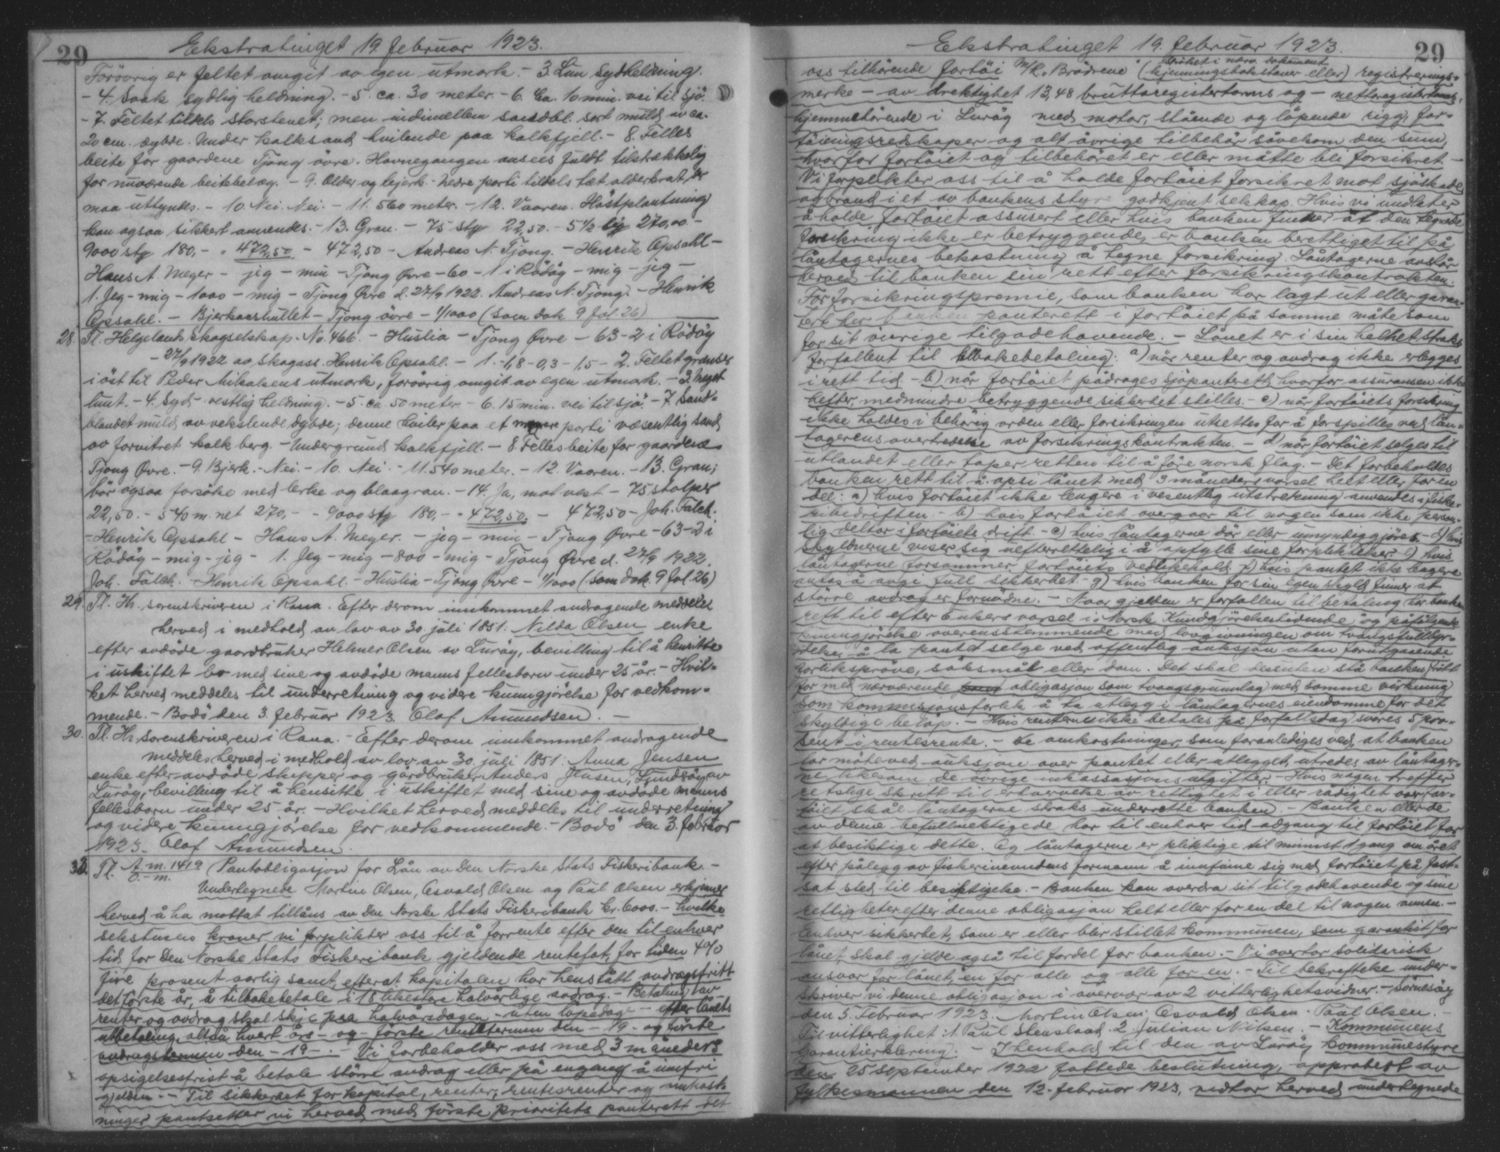 29
Ekstratinget 19 februar 1923.
Forøvrig er feltet omgit av egen utmark. – 3. Lun Sydheldning.
– 4. Svak sydlig heldning. – 5. ca. 30 meter. – 6. Ca. 10 min. vei til sjø.
– 7. Feltet tildels storstenet; men indimellem sort muld av ca.
20 cm. dybde. Under kalksand hvilende paa kalkfjell. – 8. Felles
beite for gaardene Tjong øvre. Havnegangen ansees fuldt tilstrekkelig
for nuværende beitebelæg. – 9. Older og bjerk. Nedre parti tildels tæt olderkrat, før
maa uttyndes. – 10. Nei. Nei. – 11. 560 meter. – 12. Vaaren. Høstplantning
kan ogsaa sikkert anvendes. – 13. Gran. – 75 stp 22,50. – 540 270,00 –
9000 stp 180,– . 472,50 – 472,50 – Andreas N. Tjong. – Henrik Opsahl –
Hans A. Meyer – jeg – min – Tjong Øvre – 60 – i Rødøy – mig – jeg –
1. Jeg – mig – 1000 – mig – Tjong Øvre d. 27/9 1922. Andreas N. Tjong. – Henrik
Opsahl. – Bjerkaashullet – Tjong øvre – 1/1000 (som dok. 9 fol 26)
28. Tl. Helgelands skogselskap. No. 466. – Hustia – Tjong Øvre – 63–2 i Rødøy
– 27/9 1922 av skogass. Henrik Opsahl – 1. – 1,8 – 0,3 – 1,5 – 2. Feltet grenser
i øst til Peder Mikalsens utmark, forøvrig omgit av egen utmark. – 3. Meget
lunt. – 4. Syd-vestlig heldning. – 5. ca 50 meter – 6. 15 min. vei til sjø. – 7. Sand-
blandet muld av vekslende dybde; denne hviler paa et parti væsentlig sand
av forvitret kalkberg. – Undergrund kalkfjell. – 8. Fellesbeite for gaardene
Tjong Øvre. – 9. Bjerk. – Nei – 10. Nei. – 11. 540 meter. – 12. Vaaren. – 13. Gran;
bør ogsaa forsøke med lerke og blaagran. – 14. Ja, mot vest – 75 stolper
22,50. – 540 m net 270,– – 9000 stp 180,– – 472,50 – 472,50 – Joh. Falch.
– Henrik Opsahl – Hans A. Meyer. – jeg – min – Tjong Øvre – 63–2 i
Rødøy – mig – jeg – 1. Jeg – mig – – mig – Tjong Øvre d. 27/9 1922.
Joh. Falch. – Henrik Opsahl – Hustia – Tjong Øvre – 1/1000 (som dok. 9 fol 26)
29. Tl. Hr. sorenskriveren i Rana. Efter derom innkommet andragende meddeles
herved i medhold av lov av 30 juli 1851. Nilda Olsen enke
efter avdøde gaardbruker Helmer Olsen av Lurøy, bevilling til å hensitte
i uskiftet bo med sine og avdøde manns fellesbarn under 25 år. – Hvil-
ket herved meddeles til underretning og videre kunngjørelse for vedkom-
mende. – Bodø den 3. februar 1923. Olaf Amundsen. –
30. Tl. Hr. sorenskriveren i Rana. – Efter derom innkommet andragende
meddeles herved i medhold av lov av 30 juli 1851. Anna Jensen
enke efter avdøde skipper og gårdbruker Anders Jensen, av
Lurøy, bevilling til å hensitte i uskiftet med sine og avdøde manns
fellesbarn under 25 år. – Hvilket herved meddeles til underretning
og videre kunngjørelse for vedkommende. – Bodø den 3. februar
1923. Olaf Amundsen.
32. Tl. A. m. 1419 Pantobligasjon for Lån av Den Norske Stats Fiskeribank. –
Underlegnede Martin Olsen, Osvald Olsen og Paal Olsen erkjenner
herved å ha mottat tillåns av Den Norske Stats Fiskeribank kr. 6000. – hvilke
sekstusen kroner vi forplikter oss til å forrente efter den til enhver
tid for Den Norske Stats Fiskeribank gjeldende rentefot, for tiden 4%
fire prosent aarlig samt, efterat kapitalen har henstått avdragsfritt
det første år, å tilbakebetale i 18 like store halvårlige avdrag. – Betaling av
renter og avdrag skal skje på halvårsdagen – uten løpedag – efter lånets
utbetaling, altså hvert års – og – første rentetermin den – 19 – og første
avdragstermin den – 19 –. – Vi forbeholder oss med 3 måneders
opsigelsesfrist å betale større avdrag eller på engang å innfri
gjelden. – – Til sikkerhet for kapital, renter, rentesrenter og omkost-
ninger pantsetter vi herved med første prioritets panterett det
Ekstratinget 19. februar 1923.
29
oss tilhørende fartøi M/K. Brødrene (kjenningsbokstaver eller) registrerings-
merke – av drektighet 13,48 bruttoregistertonns og – nettoregistertonns,
hjemmehørende i Lurøy med motor, stående og løpende rigg, for-
tøiningsredskaper og alt øvrige tilbehør såvelsom den sum,
hvorfor fartøiet og tilbehøret er eller måtte bli forsikret –
Vi forplikter oss til å holde fartøiet forsikret mot sjøskade
og brand i et av bankens styre godkjent selskap. Hvis vi undlater
å holde fartøiet assurert eller hvis banken finner at den tegnede
forsikring ikke er betryggende, er banken berettiget til på
låntagernes bekostning å tegne forsikring. Låntagerne overdrar
til banken sin rett efter forsikringskontrakten.
For forsikringspremie, som banken har lagt ut eller garan-
tert har banken panterett i fartøiet på samme måte som
for sit øvrige tilgodehavende. – Lånet er i sin helhet straks
forfallent til tilbakebetaling: a) når renter og avdrag ikke erlegges
i rett tid – b) når fartøiet pådrages sjøpanterett, hvorfor assuransen ikke
hefter medmindre betryggende sikkerhet stilles. – c) når fartøiets forsikring
ikke holdes i behørig orden eller forsikringen utsettes for å forspilles ved lån-
tagerens overtredelse av forsikringskontrakten. – d) når fartøiet selges til
utlandet eller taper retten til å føre norsk flag. – Det forbeholdes
banken rett til å opsi lånet med 3 måneders varsel helt eller for en
del: a) hvis fartøiet ikke lengere i vesentlig utstrekning anvendes i fiske-
ribedriften – b) hvis fartøiet overgaar til nogen som ikke person-
lig deltar i fartøiets drift – c) hvis låntagerne dør eller umyndiggjøres – d) hvis
skyldnerne viser seg uefterrettelig i å opfylle sine forpliktelser e) hvis
låntagerne forsømmer fartøiets vedlikehold f) hvis pantet ikke lengere
antas å avgi full sikkerhet – g) hvis banken for sin egen skyld finner at
større avdrag er fornødne. – Naar gjelden er forfallen til betaling har banken
rett til efter 6 ukers varsel i Norsk Kundgjørelsestidende og påfølgende
kunngjørelse overensstemmende med lovgivningen om tvangsfullbyr-
delse å la pantet selge ved offentlig auksjon uten forutgaaende
forliksprøve, søksmål eller dom. Det skal desuten stå banken fritt
for med nærværende obligasjon som tvangsgrunnlag med samme virkning
som kommisjonsforlik å ta utlegg i låntagernes eiendomme for det
skyldige beløp. – Hvis rentene ikke betales på forfallsdag svares 5 pro-
sent i rentesrente. – De omkostninger, som foranlediges ved at banken
lar møte ved auksjon over pantet eller utlegget, utredes av låntager-
ne likesom de øvrige inkassasjonsutgifter. – Hvis nogen treffer
rettslige skritt til erhvervelse av rettighet i eller rådighet over far-
tøiet skal låntagerne straks underrette banken – Banken eller de
av denne befullmektigede har til enhver tid adgang til fartøiet for
at besiktige dette. Og låntagerne er pliktige til minst 1 gang om året
efter pålegg av fiskerinevndens formann å innfinne sig med fartøiet på fast-
sat sted til besiktigelse. – Banken kan overdra sit tilgodehavende og sine
rettigheter efter denne obligasjon helt eller for en del til nogen annen. –
Enhver sikkerhet, som er eller blir stillet kommunen, som garantist, for
lånet, skal gjelde også til fordel for banken. – Vi overtar solidarisk
ansvar for lånet, en for alle og alle for en. – Til bekreftelse under-
skriver vi denne obligasjon i overvær av 2 vitterlighetsvidner. –
den 5. Februar 1923. Martin Olsen. Osvald Olsen. Paal Olsen. –
Til vitterlighet: 1. Paul Stensland. 2. Julian Nilsen. – Kommunens
Garantierklæring. – I henhold til den av Lurøy kommunestyre
den 25 september 1922 fattede beslutning, approbert av
fylkesmannen den 12. februar 1923, vedtar herved undertegnede